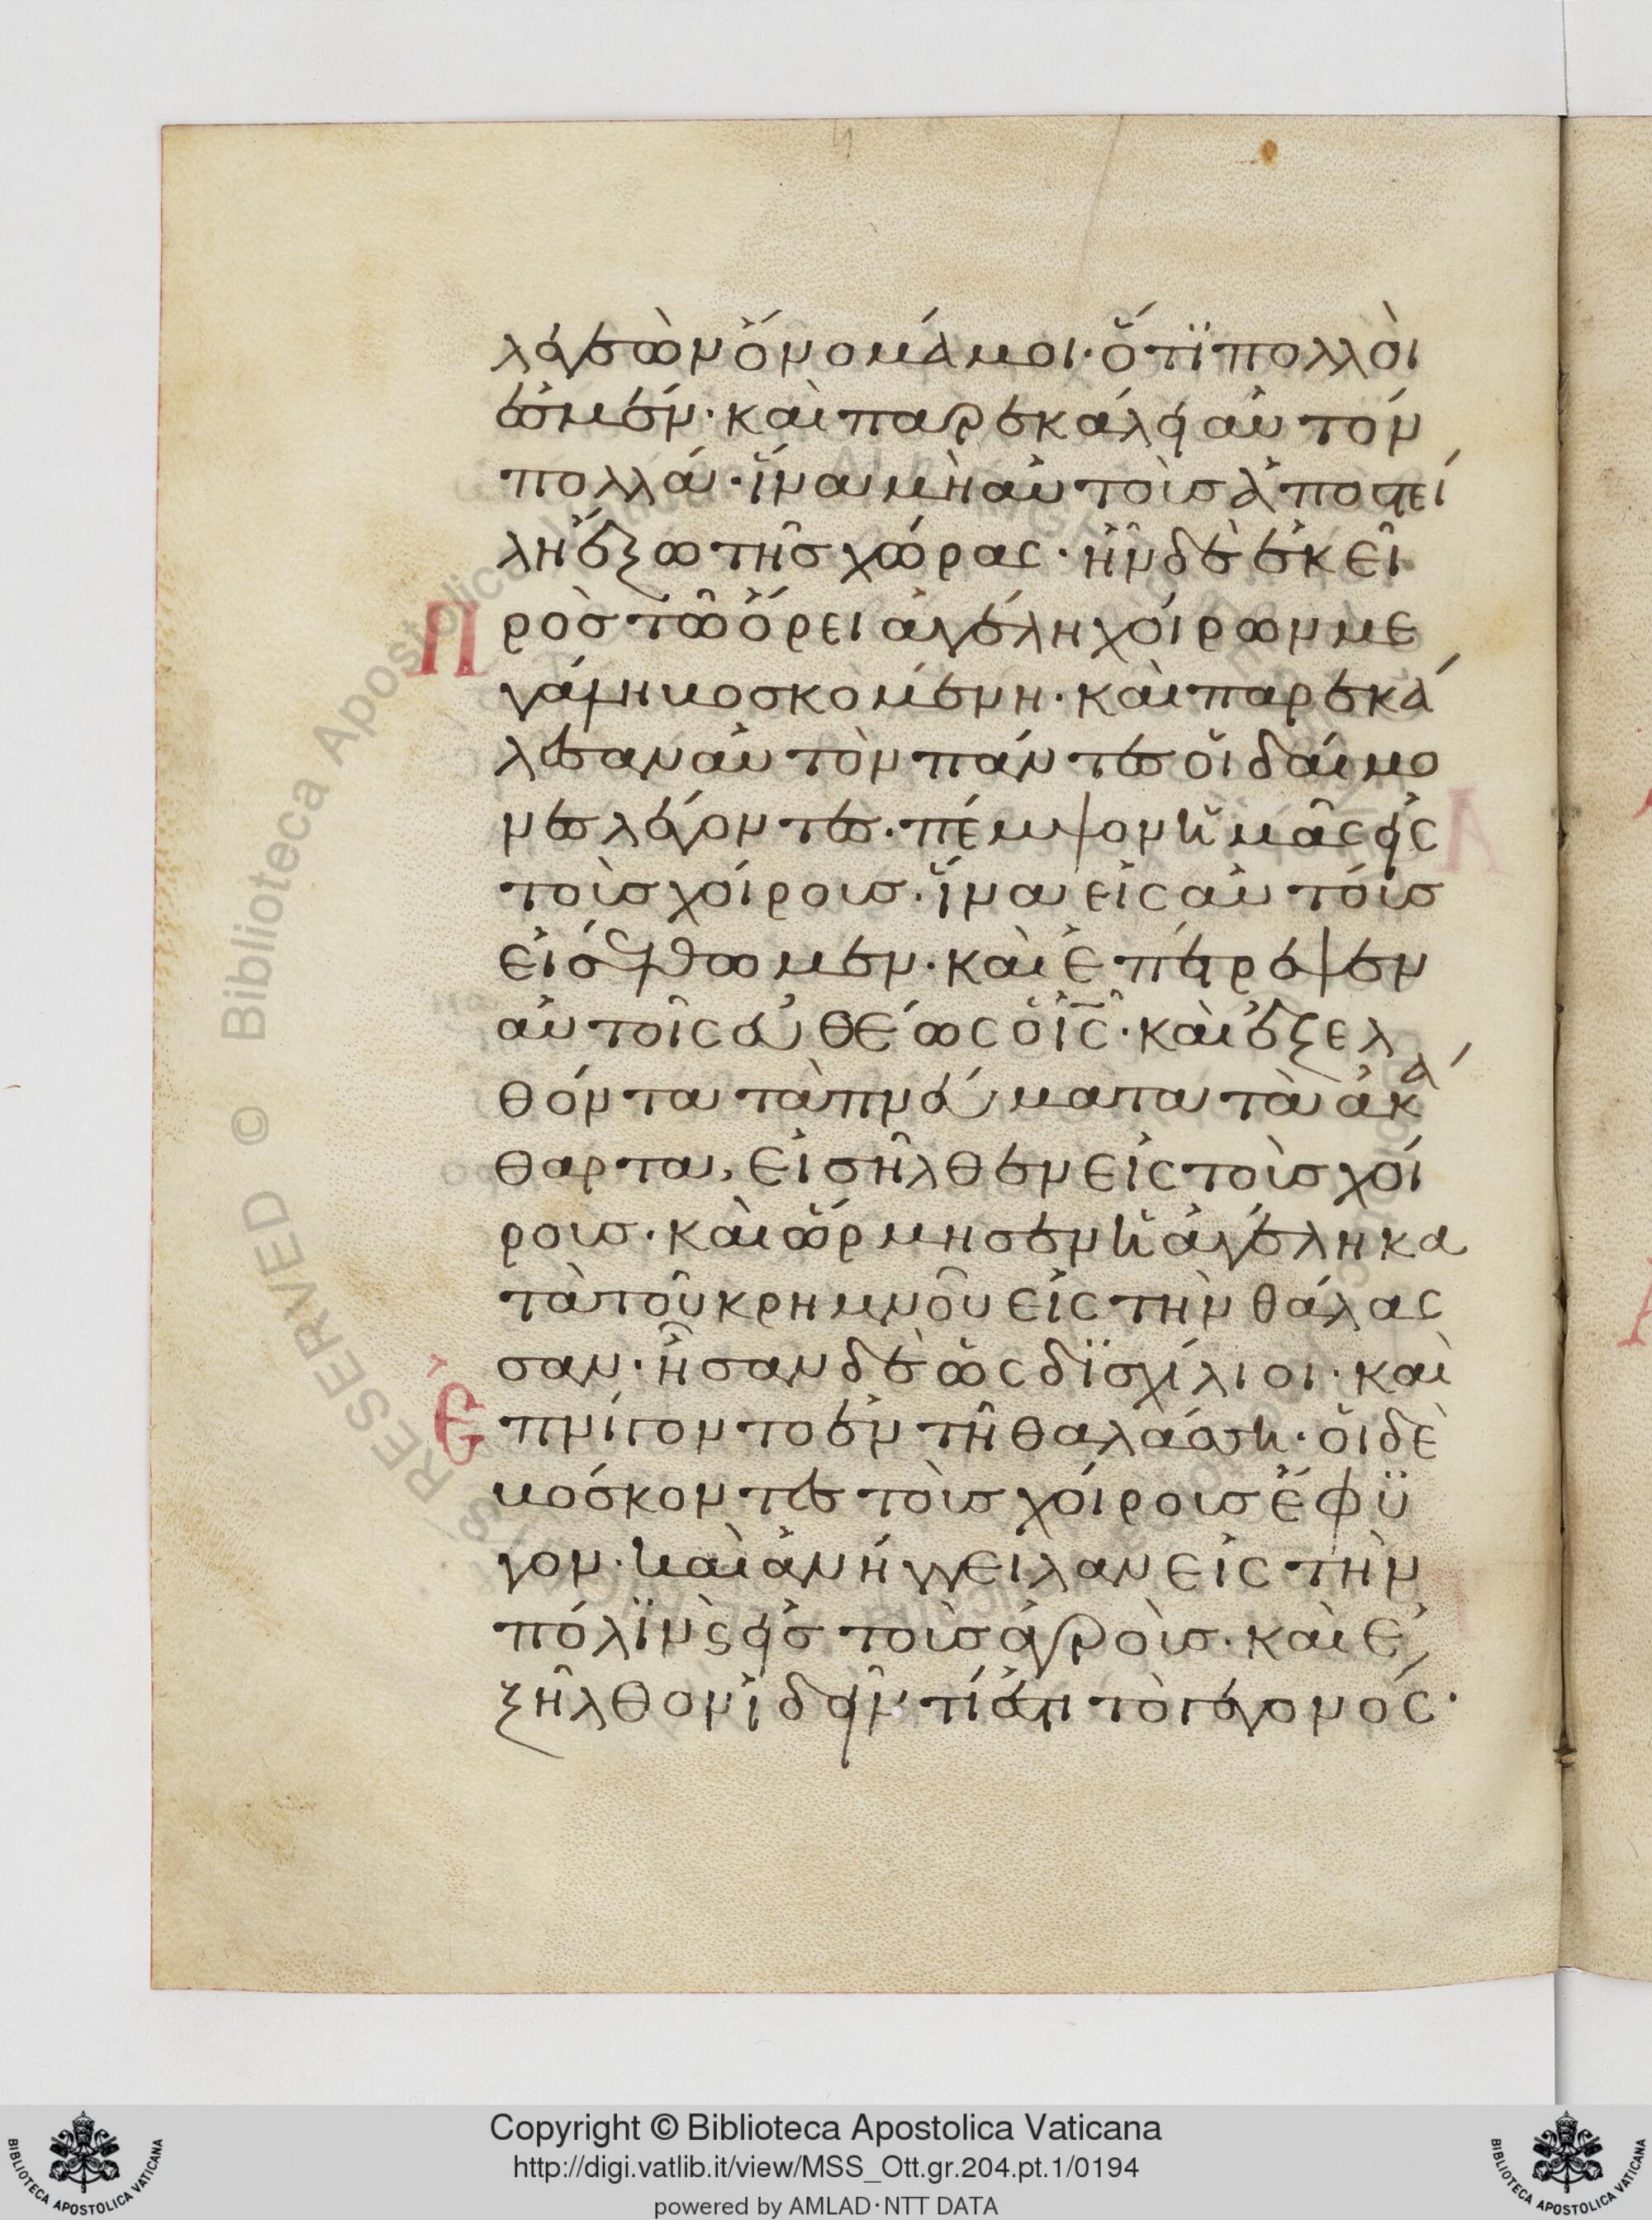 λεγεὼν ὄνομά μοι· ὅτϊ πολλοί
ἐσμέν· καὶ παρεκάλει αὐτὸν
πολλά· ἵνα μὴ αὐτοὺς ἀποστεί
λη ἔξω τῆς χώρας· ἦν δὲ ἐκεῖ
Πρὸς τῶ ὄρει ἀγέλη χοίρων με
γάλη βοσκομένη· καὶ παρεκά
λεσαν αὐτὸν πάντες οἱ δαίμο
νες λέγοντες· πέμψον ἡμᾶς εἰς
τοὺς χοίρους· ἵνα εἰς αὐτοὺς
εἰσέλθωμεν· καὶ ἐπέτρεψεν
αὐτοῖς εὐθέως ὁ ἰς· καὶ ἐξελ
θόντα τὰ πνεύματα τὰ ἀκά
θαρτα, εἰσῆλθεν εἰς τοὺς χοί
ρους· καὶ ὥρμησεν ἡ ἀγέλη κα
τὰ τοῦ κρημνοῦ εἰς τὴν θάλασ
σαν· ἦσαν δὲ ὡς δϊσχίλιοι· καὶ
Ἐπνίγοντο ἐν τῆ θαλάσση· οἱ δὲ
βόσκοντες τοὺς χοίρους ἔφϋ
γον· καὶ ἀνήγγειλαν εἰς τὴν
πόλϊν ϗ εἰς τοὺς ἀγρούς· καὶ ἐ
ξῆλθον ἰδεῖν τί ἐστι τὸ γεγονός·
Copyright © Biblioteca Apostolica Vaticana
http://digi.vatlib.it/view/MSS_Ott.gr.204.pt.1/0194
powered by AMLAD·NTT DATA
BIBLIOTECA APOSTOLICA VATICANA
BIBLIOTECA APOSTOLICA VATICANA